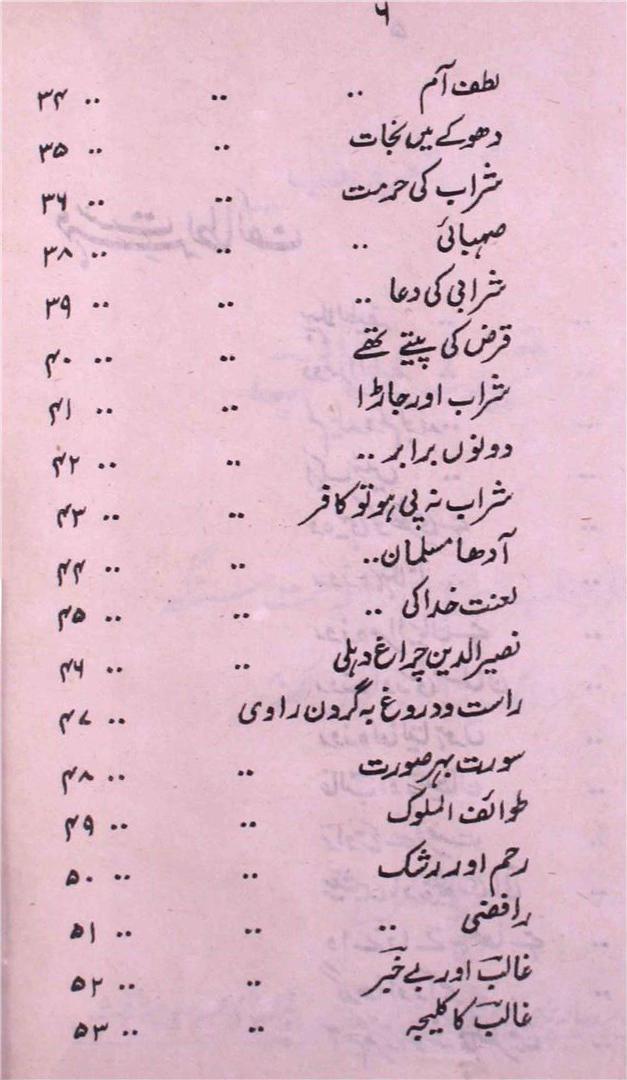 ۶
لطف آم .. .. .. ۳۴
دھوکے میں نجات .. .. ۳۵
شراب کی حرمت .. .. ۳۶
صہبائی .. .. .. ۳۸
شرابی کی دعا .. .. .. ۳۹
قرض کی پیتے تھے .. .. ۴۰
شراب اور جاڑا .. .. ۴۱
دونوں برابر .. .. .. ۴۲
شراب نہ پی ہو تو کافر .. .. ۴۳
آدھا مسلمان .. .. .. ۴۴
لعنت خدا کی .. .. .. ۴۵
نصیر الدین چراغ دہلی .. .. ۴۶
راست و دروغ بہ گردن راوی .. ۴۷
سورت بہر صورت .. .. ۴۸
طوائف الملوک .. .. ۴۹
رحم اور رشک .. .. ۵۰
رافضی .. .. .. ۵۱
غالبؔ اور بے خبرؔ .. .. ۵۲
غالبؔ کا کلیجہ .. .. ۵۳